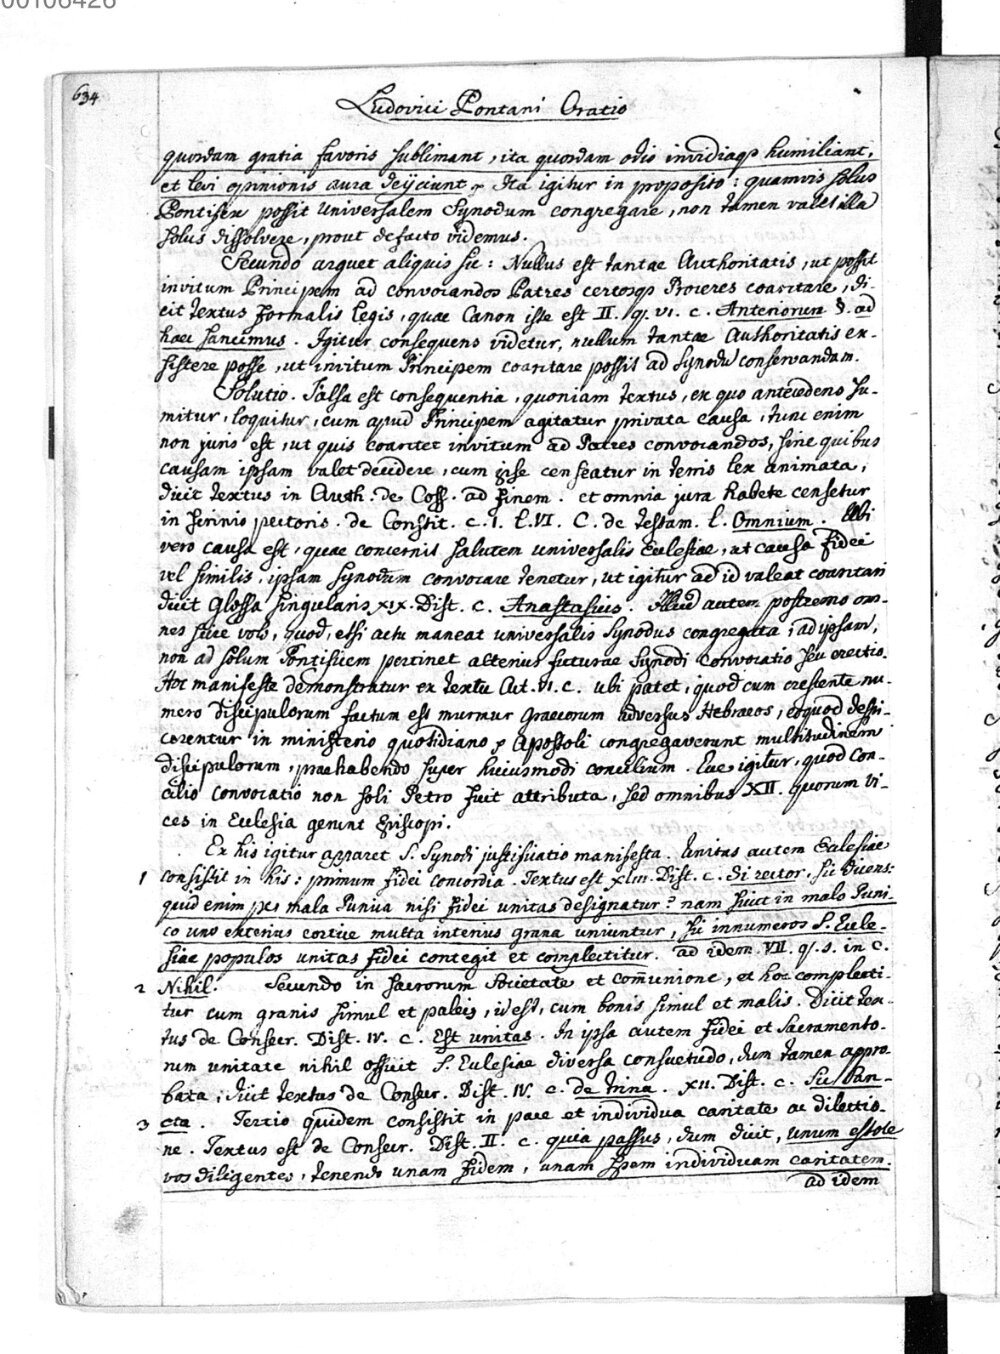 00106426
634
Ludovici Pontani Oratio
quordam gratia favoris sublimant, ita quordam odio invidiaq3 humiliant,
et levi opinionis aura deijciunt. Ita igitur in proposito: quamvis solus
Pontifex possit Universalem Synodum congregare, non tamen valet illa
solus dissolvere, prout de facto videmus.
Secundo arguet aliquis sic: Nullus est tantae Authoritatis, ut possit
invitum Principem ad convocandos Patres certosq3 Proceres coarctare, di-
cit textus formalis legis, quae Canon iste est II. q. VI. c. Anteriorum §. ad
haec sancimus. Igitur consequens videtur, nullum tantae Authoritatis ex-
sistere posse, ut invitum Principem coarctare possit ad Synodū conservandam.
Solutio. Falsa est consequentia, quoniam textus, ex quo antecedens su-
mitur, loquitur, cum apud Principem agitatur privata causa, tunc enim
non juris est, ut quis coarctet invitum ad Patres convocandos, sine quibus
causam ipsam valet decidere, cum ipse censeatur in terris lex animata,
dicit textus in Auth. de Coss. ad finem. et omnia jura habete censetur
in scrinio pectoris. de Constit. c. I. l. VI. C. de testam. l. Omnium. Ubi
vero causa est, quae concernit salutem universalis Ecclesiae, ut causa fidei
vel similis, ipsam Synodum convocare tenetur, ut igitur ad id valeat coarctari
dicit Glossa singularis XIX. Dist. c. Anastasius. Illud autem postremo om-
nes scire volo, quod, etsi actu maneat universalis Synodus congregata, ad ipsam,
non ad solum Pontificem pertinet alterius futurae Synodi convocatio seu erectio.
Hoc manifeste demonstratur ex textu Act. VI. c. ubi patet, quod cum crescente nu-
mero discipulorum factum est murmur Graecorum adversus Hebraeos, eoquod despi-
cerentur in ministerio quotidiano, Apostoli congregaverunt multitudinem
discipulorum, praehabendo super huiusmodi concilium. Ecce igitur, quod Con-
cilio convocatio non soli Petro fuit attributa, sed omnibus XII. quorum vi-
ces in Ecclesia gerunt Episcopi.
Ex his igitur apparet S. Synodi justificatio manifesta. Unitas autem Ecclesiae
1 consistit in his: primum fidei concordia. Textus est XLIII. Dist. c. Si rector, sic dicens:
quid enim per mala Punica nisi fidei unitas designatur? nam sicut in malo Puni-
co uno exterius cortice multa interius grana uniuntur, sic innumeros S. Eccle-
siae populos unitas fidei contegit et complectitur. ad idem VII. q. I. in c.
2 Nihil. Secundo in sacrorum Societate et com̄unione, et hoc complecti-
tur cum granis simul et paleis, id est, cum bonis simul et malis. Dicit tex-
tus de Consecr. Dist. IV. c. Est unitas. In ipsa autem fidei et Sacramento-
rum unitate nihil officit S. Ecclesiae diversa consuetudo, dum tamen appro-
bata, dicit textus de Consecr. Dist. IV. c. de trina. XII. Dist. c. Sic San-
3 cta. Tertio quidem consistit in pace et individua caritate ac dilectio-
ne. Textus est de Consecr. Dist. II. c. quia passus, dum dicit, unum estote
vos diligentes, tenendo unam fidem, unam spem individuam caritatem.
ad idem